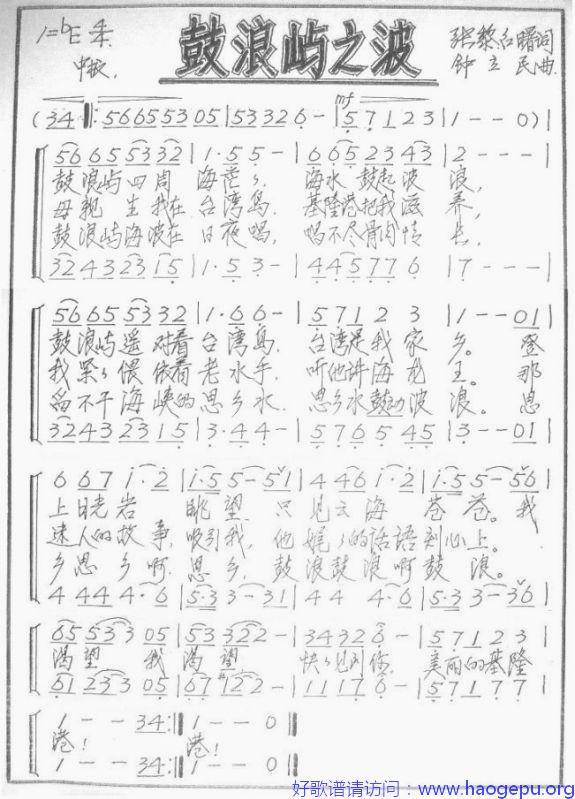 1=bE 4/4
中板.
鼓浪屿之波
张藜 红曙词
钟立民曲
(34 ‖: 56 65 53 05 | 53 32 6 - | mf 5 7 1 23 | 1 - - 0) |
56 65 53 32 | 1·5 5 - | 6 65 23 43 | 2 - - - |
鼓浪屿四周 海茫々, 海水鼓起波浪,
母亲生我在台湾岛, 基隆港把我滋养,
鼓浪屿海波在日夜唱, 唱不尽骨肉情长,
32 43 23 15 | 1·5 3 - | 4 45 77 6 | 7 - - - |
56 65 53 32 | 1·6 6 - | 5 71 2 3 | 1 - - 01 |
鼓浪屿遥对着台湾岛, 台湾是我家乡。登
我紧々偎依着老水手, 听他讲海龙王。那
舀不干海峡的思乡水, 思乡水鼓动波浪。思
32 43 23 15 | 3·4 4 - | 5 76 5 45 | 3 - - 01 |
6 67 1·2 | 1·5 5 - 51 | 4 46 1·2 | 1·5 5 - 56 |
上日光岩 眺望, 只见云海苍苍。我
迷人的故事, 吸引我, 他娓々的话语到心上。
乡思乡啊, 思乡, 鼓浪鼓浪啊鼓浪。
4 44 4·6 | 5·3 3 - 31 | 4 4 4·6 | 5·3 3 - 36 |
65 53 3 05 | 53 32 2 - | 34 32 6 - | 5 71 2 3 |
渴望 我渴望 快々见到你, 美丽的基隆
61 23 3 05 | 67 12 2 - | 11 17 6 - | 5 71 7 7 |
1 - - 34 :‖ 1 - - 0 ‖
港! 港!
1 - - 34 :‖ 1 - - 0 ‖
好歌谱请访问：www.haogepu.org